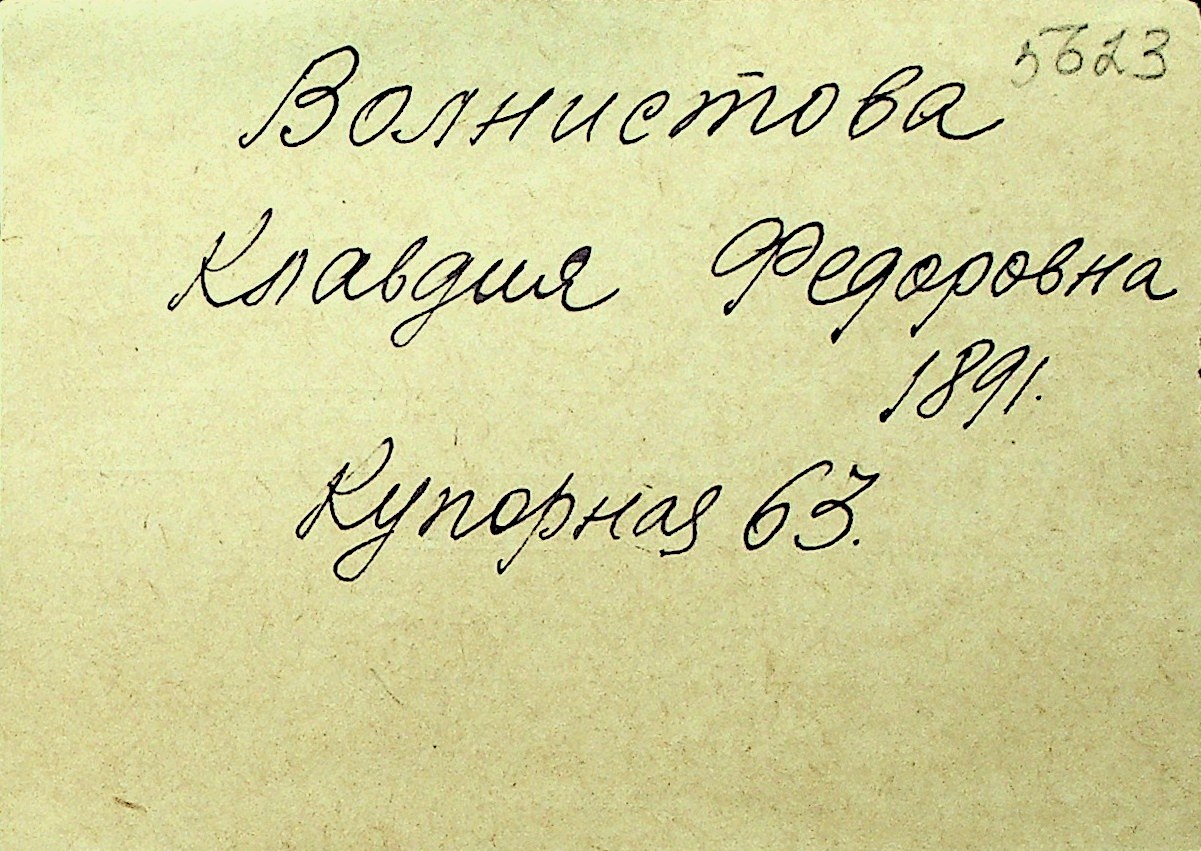 5623
Волнистова
Клавдия Федоровна
1891.
Купорная 63.